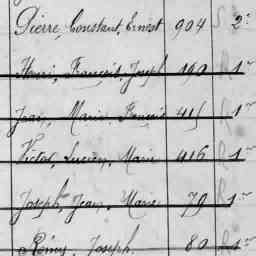 Pierre, Constant, Ernest 904 2e
Henri, François, Joseph 190 1er
Jean, Marie, François 415 1er
Victor, Lucien, Marie 916 1er
Joseph, Jean, Marie 79 1er
Rémy, Joseph. 80 1er